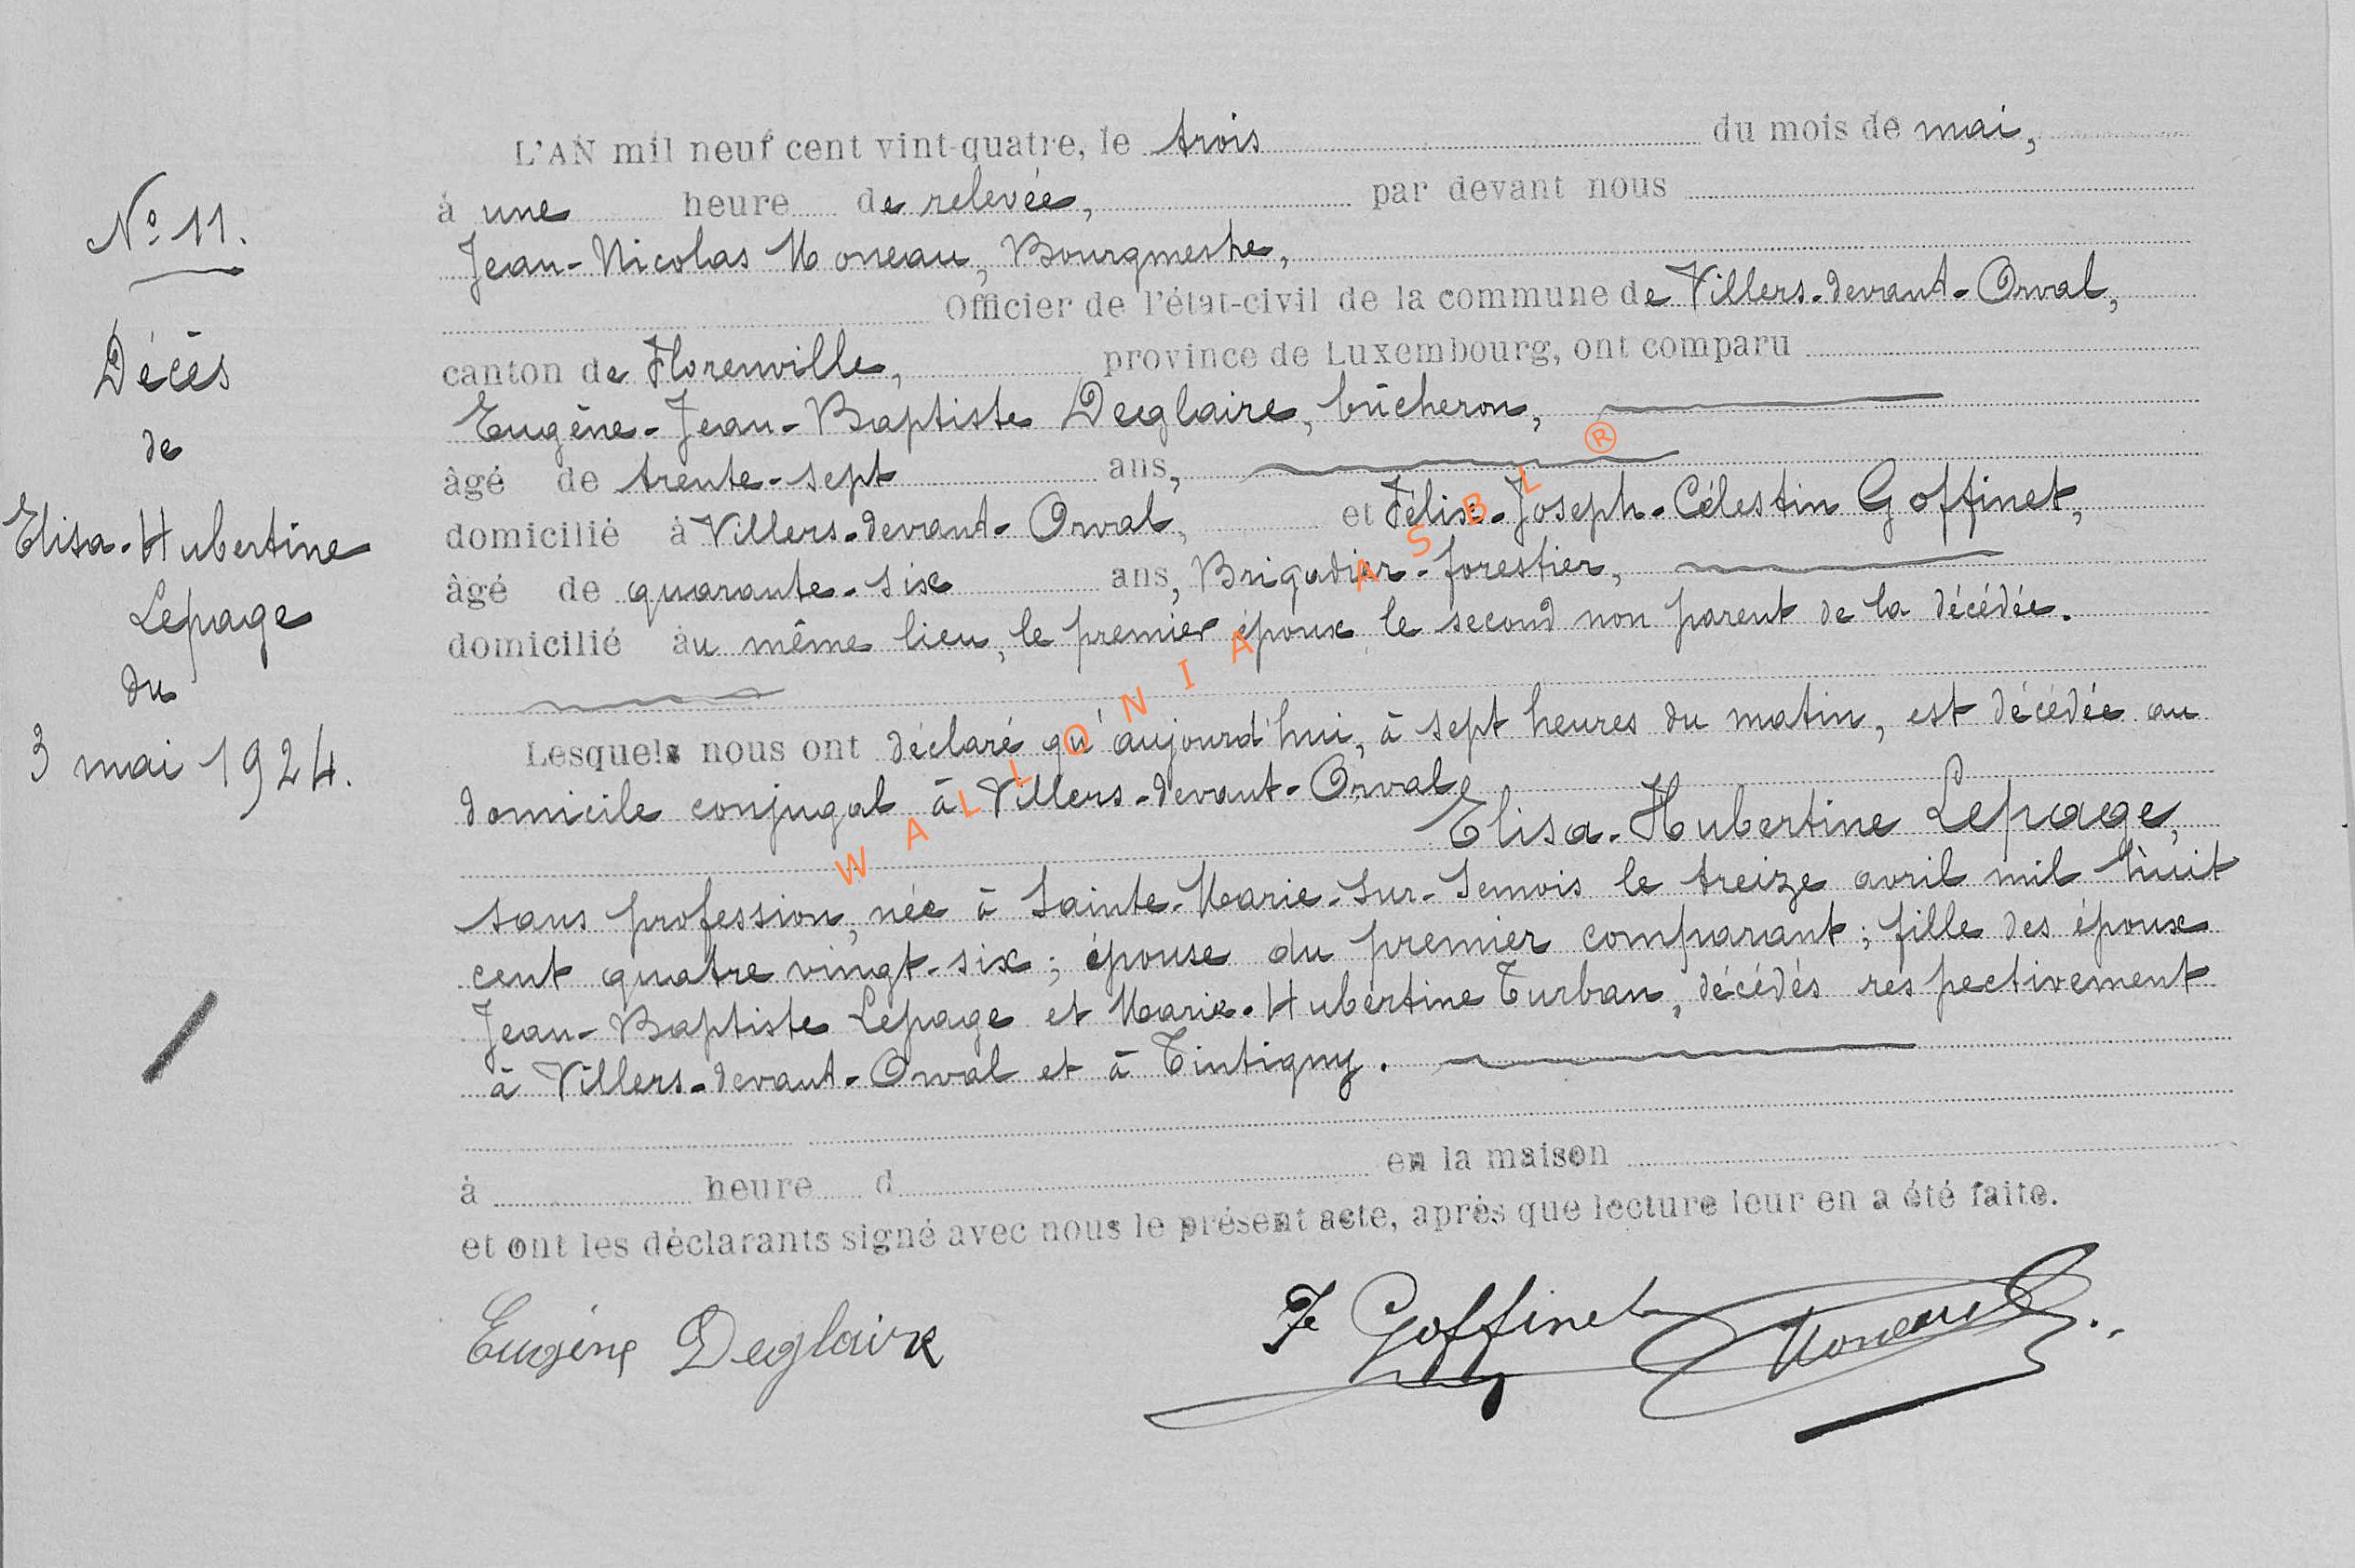 N° 11.
Décès
de
Elisa-Hubertine
Lepage
du
3 mai 1924.
L'AN mil neuf cent vint-quatre, le trois du mois de mai,
à une heure de relevée, par devant nous
Jean-Nicolas Moneau, Bourgmestre,
Officier de l'état-civil de la commune de Villers-devant-Orval,
canton de Florenville, province de Luxembourg, ont comparu
Eugène-Jean-Baptiste Deglaire, bûcheron,
âgé de trente-sept ans,
domicilié à Villers-devant-Orval, et Félix-Joseph-Célestin Goffinet,
âgé de quarante-six ans, Brigadier-forestier,
domicilié au même lieu, le premier époux le second non parent de la décédée.
Lesquels nous ont déclaré qu'aujourd'hui, à sept heures du matin, est décédée au
domicile conjugal à Villers-devant-Orval
Elisa-Hubertine Lepage,
sans profession, née à Sainte-Marie-Sur-Semois le treize avril mil huit
cent quatre vingt-six; épouse du premier comparant; fille des époux
Jean-Baptiste Lepage et Marie-Hubertine Turban, décédés respectivement
à Villers-devant-Orval et à Tintigny.
à heure d en la maison
et ont les déclarants signé avec nous le présent acte, après que lecture leur en a été faite.
Eugène Deglaire Fe Goffinet Moneau
WALLONIA ASBL ®